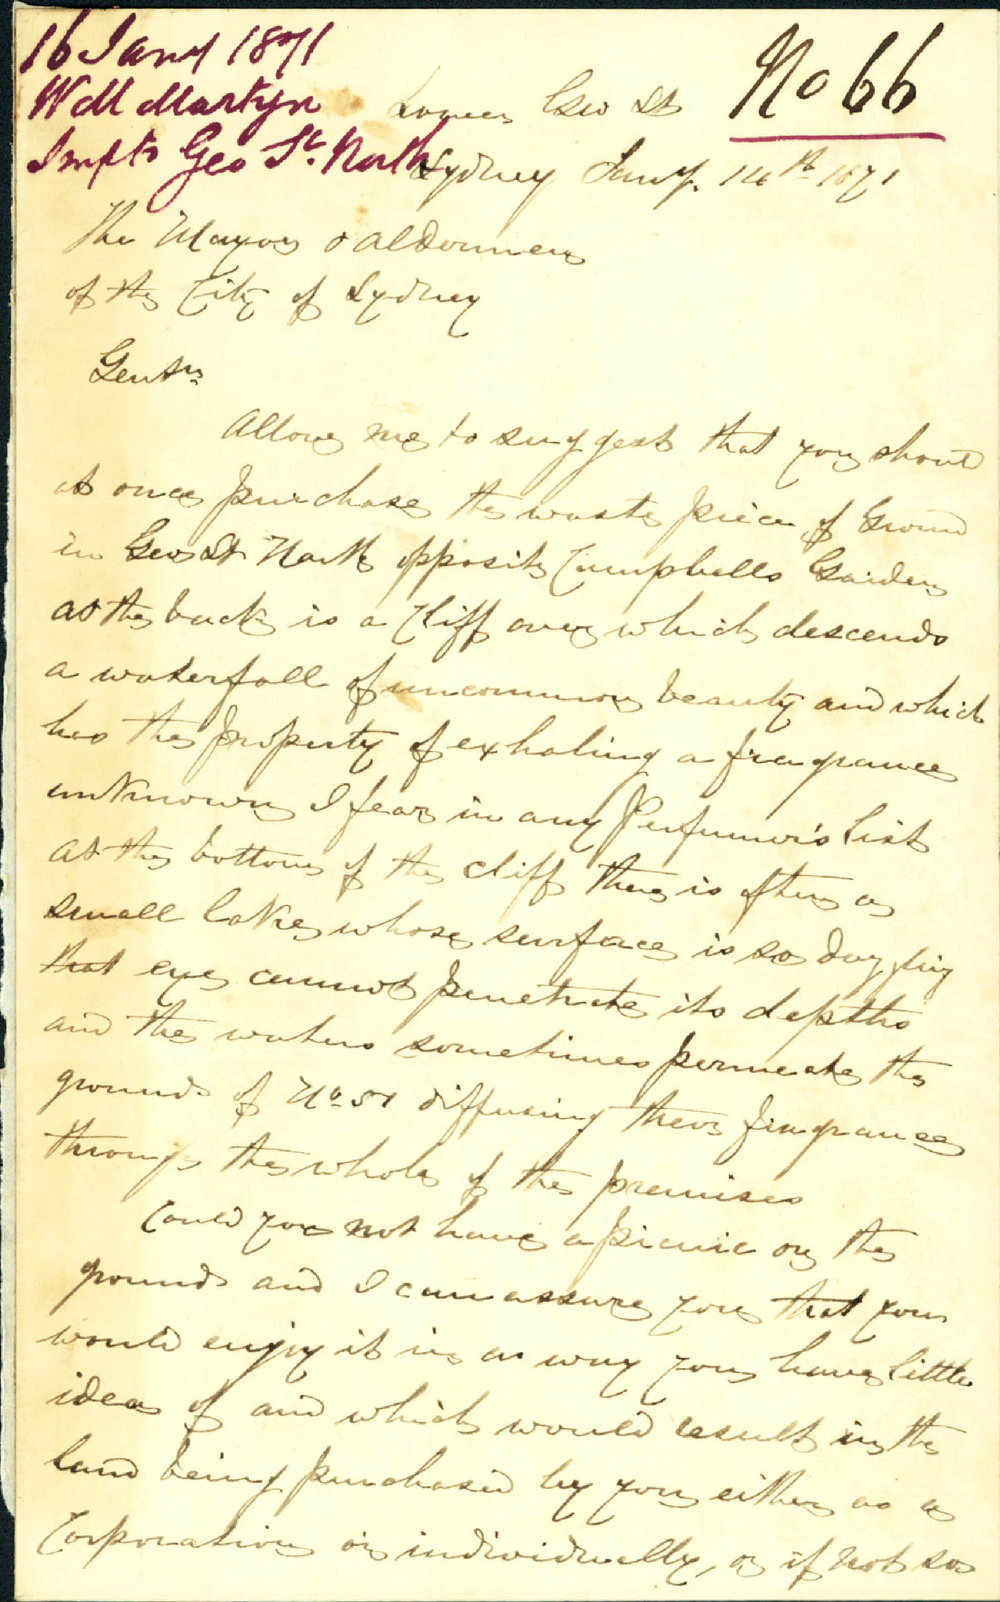 16 Jany 1871
No 66
Wm Martyn
Lower Geo St
Impts Geo St. North
Sydney Jany. 14th 1871
The Mayor & Aldermen
of the City of Sydney
Gentn
Allow me to suggest that you should
at once purchase the waste piece of Ground
in Geo St North opposite Campbells Garden
at the back is a Cliff over which descends
a waterfall of uncommon beauty and which
has the property of exhaling a fragrance
unknown I fear in any Perfumer's list
At the bottom of the cliff there is often a
small lake whose surface is so dazzling
that eye cannot penetrate its depths
and the waters sometimes permeate the
grounds of No 51 diffusing their fragrance
through the whole of the premises
Could you not have a picnic on the
grounds and I can assure you that you
would enjoy it in a way you have little
idea of and which would result in the
land being purchased by you either as a
Corporation or individually, or if not so